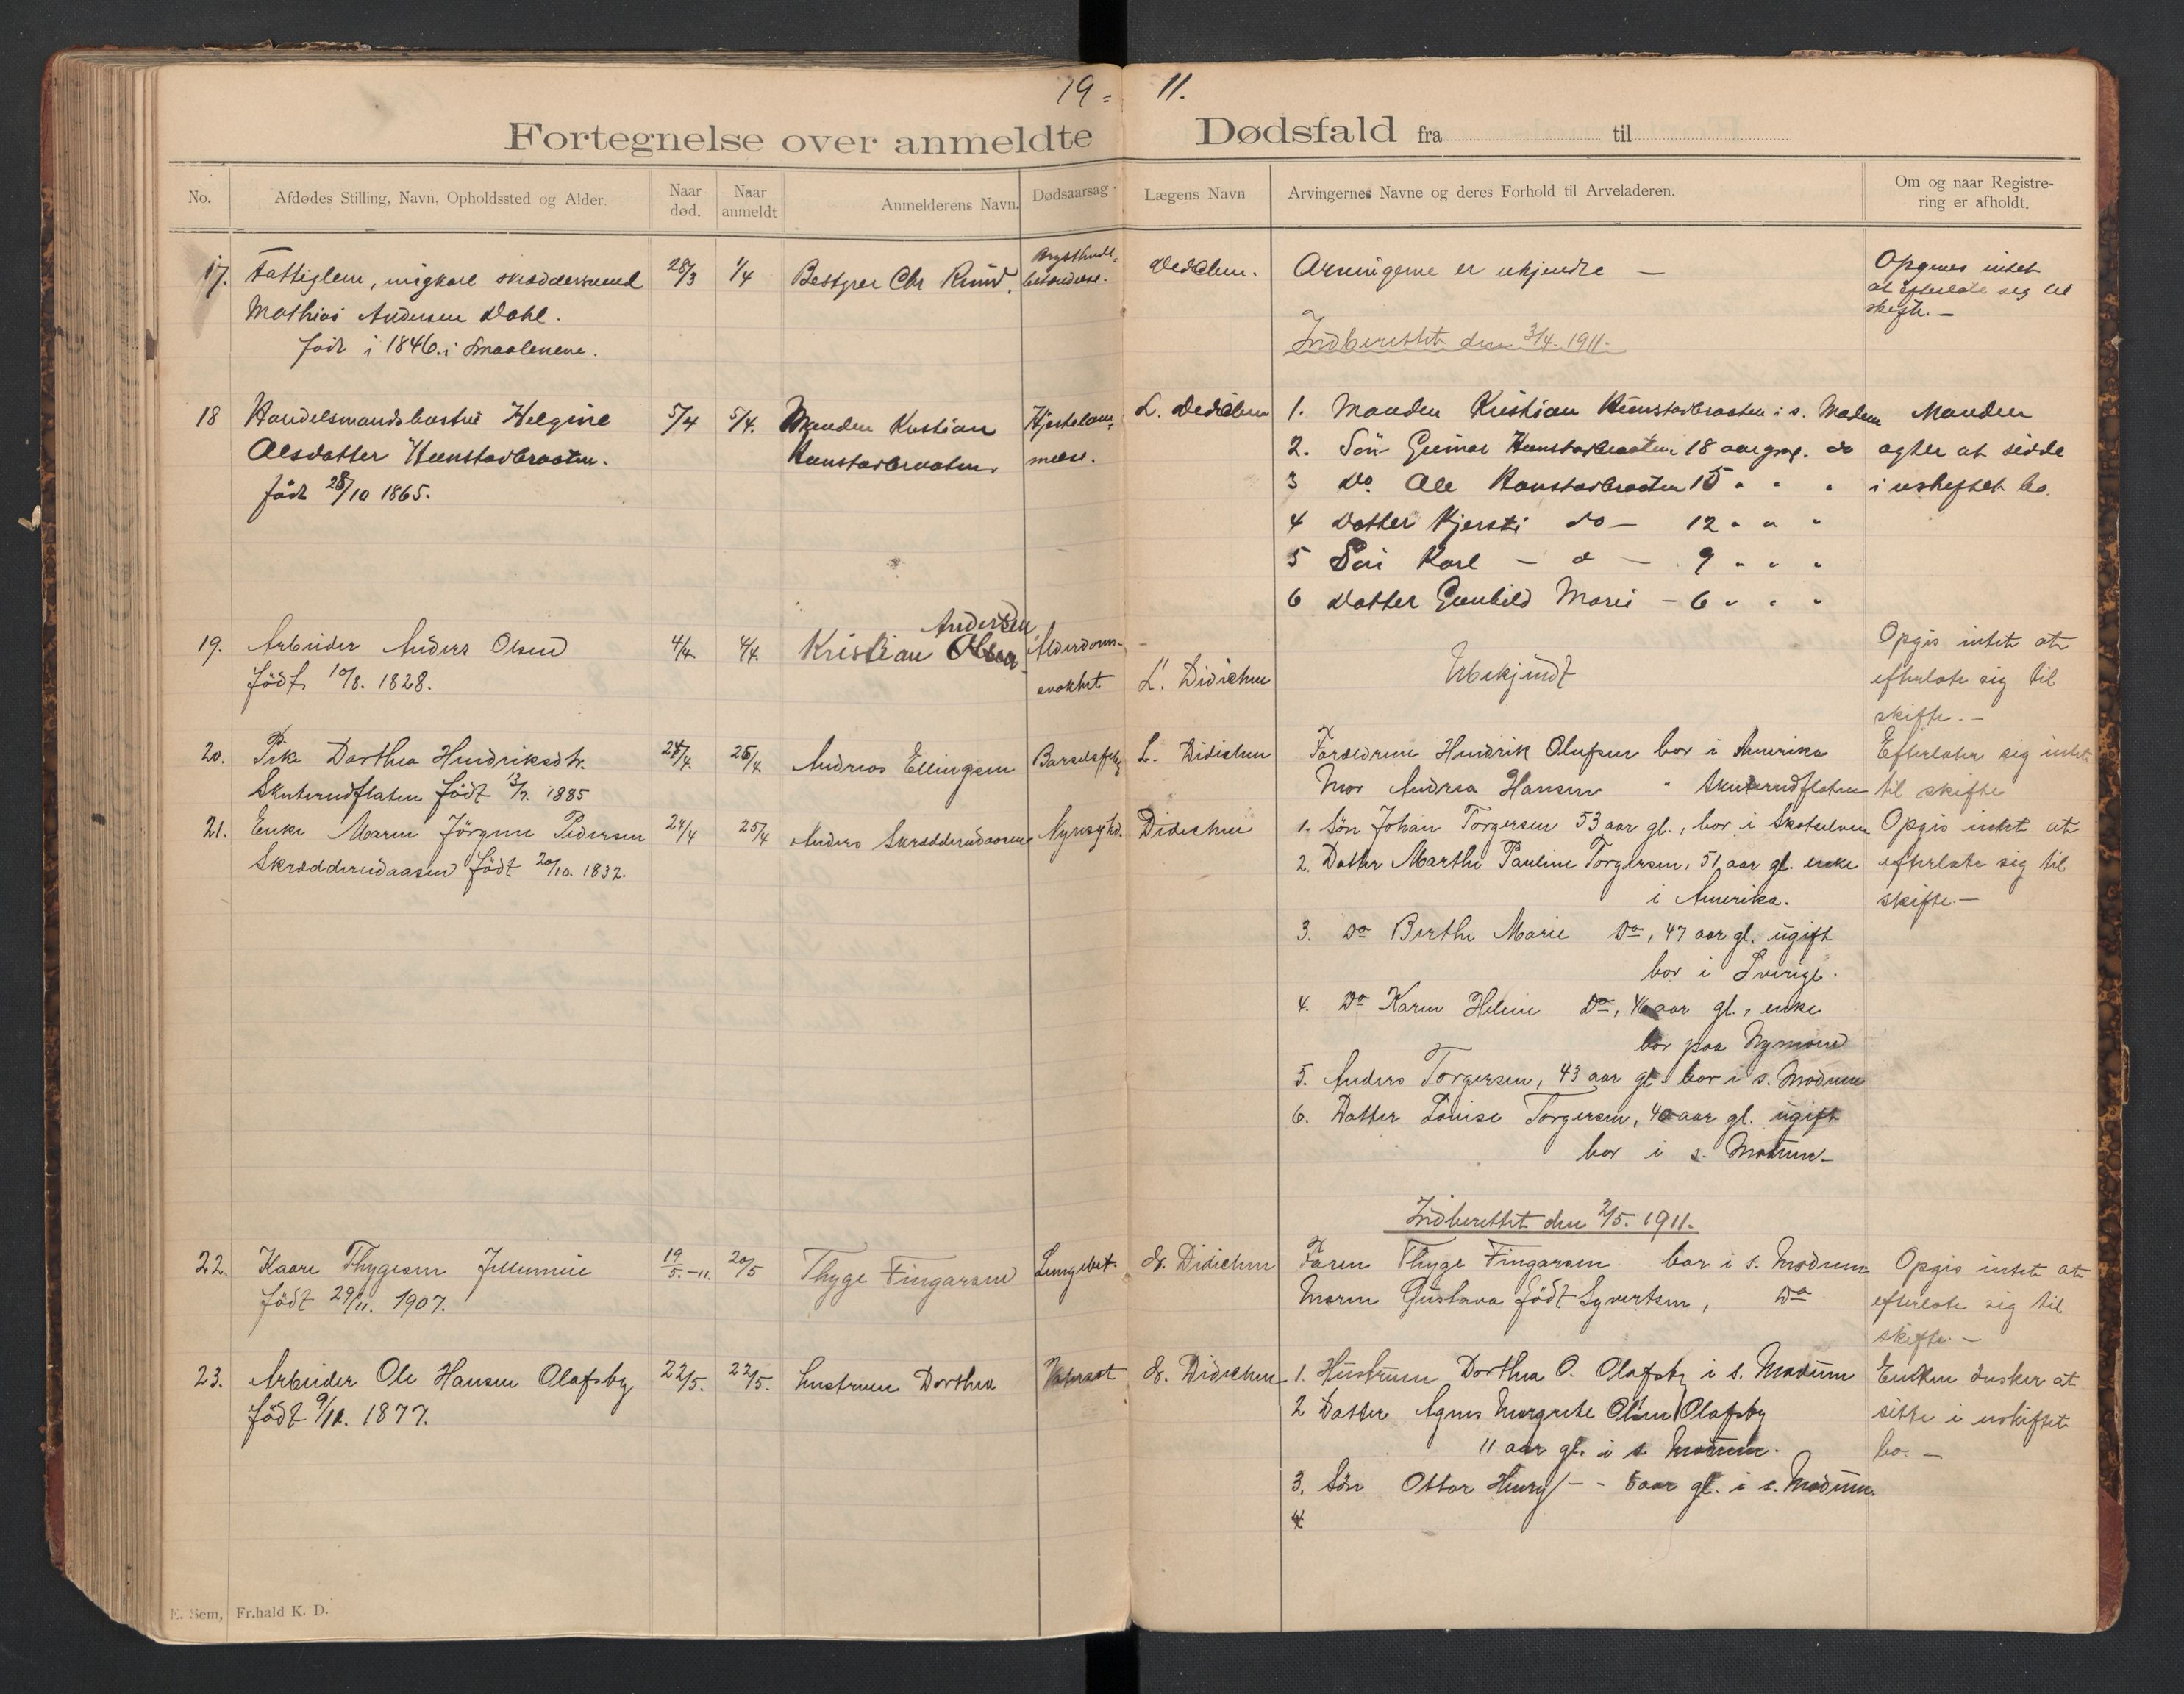 19 = 11.
Fortegnelse over anmeldte Dødsfald fra til
No.
Afdødes Stilling, Navn, Opholdssted og Alder.
Naar død.
Naar anmeldt
Anmelderens Navn.
Dødsaarsag
Lægens Navn
Arvingernes Navne og deres Forhold til Arveladeren.
Om og naar Registrering er afholdt.
17. Fattiglem, ungkarl skræddersvend 28/3 1/4 Bestyrer Chr Ruud. Didichen. Arvingerne er ukjendte —
Mathias Andersen Dahl.
født i 1846 i Smaalenene.
Opgives intet
at efterlate sig til
skifte. —
Indberettet den 3/4. 1911.
18 Handelsmandshustru Helgine 5/4 5/4. Manden Kristian L. Didichen
Olsdatter Hunstadbraaten. Hunstadbraaten.
født 28/10 1865.
1. Manden Kristian Hunstadbraaten i s. Modum
2. Søn Gunnar Hunstadbraaten 18 aar gml. do
3 Do. Ole Hunstadbraaten 15 " " "
4 Datter Kjersti do — 12 " " "
5 Søn Karl — " — 9 " " "
6 Datter Gunhild Marie — 6 " " "
Manden
agter at sidde
i uskiftet bo.
19. Arbeider Anders Olsen 4/4. 4/4. Kristian Andersen Alderdoms-
Født 10/8. 1828. svakhet L. Didichen Ubekjendt
Opgis intet at
efterlate sig til
skifte. —
20. Pike Dorthea Hendriksdtr. 24/4. 26/4. Andreas Ellingsen L. Didichen
Skuterudflaten født 13/7. 1885
Forældrene Hendrik Olufsen bor i Amerika
Mor Andrea Hansen " Skuterudflaten
Efterlater sig intet
til skifte
21. Enke Maren Jørgine Pedersen 24/4 25/4 Anders Skrædderudaasen Nyresykd. Didichen
Skrædderudaasen født 20/10. 1832.
1. Søn Johan Torgersen 53 aar gl., bor i Skotselven
2. Datter Marthe Pauline Torgersen, 51 aar gl. enke
i Amerika.
3. Do Berthe Marie Do, 47 aar gl. ugift
bor i Sverige.
4. Do Karen Helene Do, 46 aar gl., enke
bor paa Nymoen
5. Anders Torgersen, 43 aar gl. bor i s. Modum
6. Datter Louise Torgersen, 40 aar gl. ugift
bor i s. Modum. —
Opgis intet at
efterlate sig til
skifte. —
Indberettet den 2/5. 1911.
22. Kaare Thygesen 19/5. -11. 20/5 Thyge Fingarsen Lungebet. L. Didichen
født 29/11. 1907.
Faren Thyge Fingarsen bor i s. Modum
Moren Gustava født Syvertsen, Do
Opgis intet at
efterlate sig til
skifte. —
23. Arbeider Ole Hansen Olafsby 22/5. 22/5. hustruen Dorthea L. Didichen
født 9/12. 1877.
1. Hustruen Dorthea O. Olafsby i s. Modum
2 Datter Agnes Margrete Olsen Olafsby
11 aar gl. i s. Modum.
3. Søn Ottar Henry — - 8 aar gl. i s. Modum.
4
Enken ønsker at
sitte i uskiftet
bo. —
E. Sem, Fr.hald K. D.